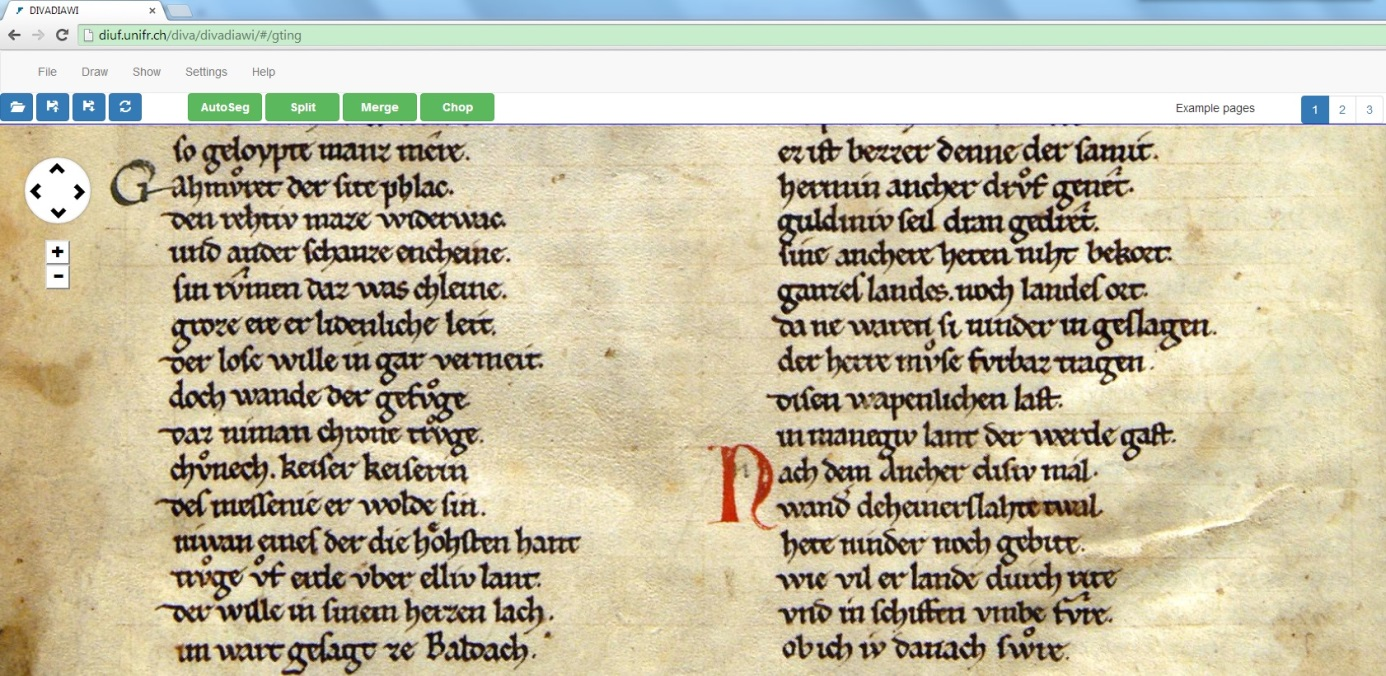 DIVADIAWI
diuf.unifr.ch/diva/divadiawi/#/gting
File Draw Show Settings Help
AutoSeg Split Merge Chop
Example pages 1 2 3
ſo geloypte manz mere.
Gahmv̊ret der ſite phlac.
den rehtiv maze widerwac.
und ander ſchanze encheine.
ſin rv̂men daz was chleine.
groze ere er lidenliche leit.
der loſe wille in gar vermeit.
doch wande der gefv̊ge
daz niman chrone trv̊ge.
chv̊nech. keiſer keiſerin
deſ meſſenie er wolde ſin.
niwan eineſ der die hohſten hant
trv̊ge v̊f erde vber elliv lant.
der wille in ſinem herzen lach.
im wart geſagt ze Baldach.
ez iſt bezzer denne der ſamit.
hermin ancher drv̊f genêt.
guldiniv ſeil dran gedrêt.
ſine anchere heten niht bekort.
ganzeſ landes. noch landeſ ort.
da ne waren ſi ninder in geſlagen.
der herre mv̊ſe fvrbaz tragen.
diſen wapenlichen laſt.
in manegiv lant der werde gaſt.
Nach dem ancher diſiv mal.
wand deheinerſlahte twal
hete ninder noch gebite.
wie vil er lande durch rite
vnd in ſchiffen vmbe fvre.
ob ich iv danach ſwv̊re.